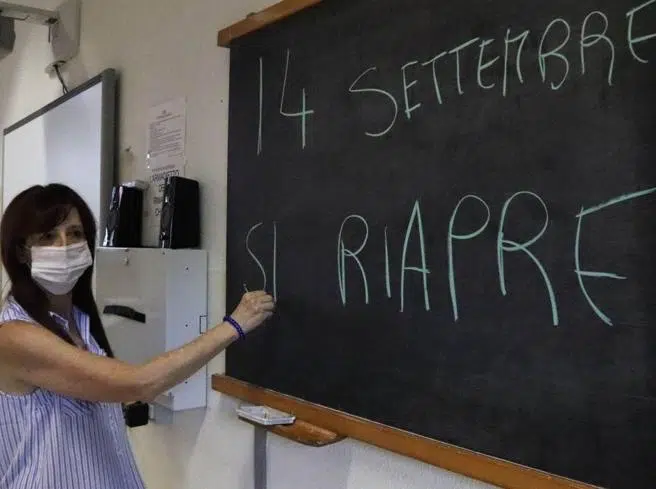 14 SETTEMBRE
SI RIAPRE